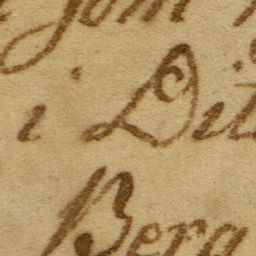 som
i Dit
Berg